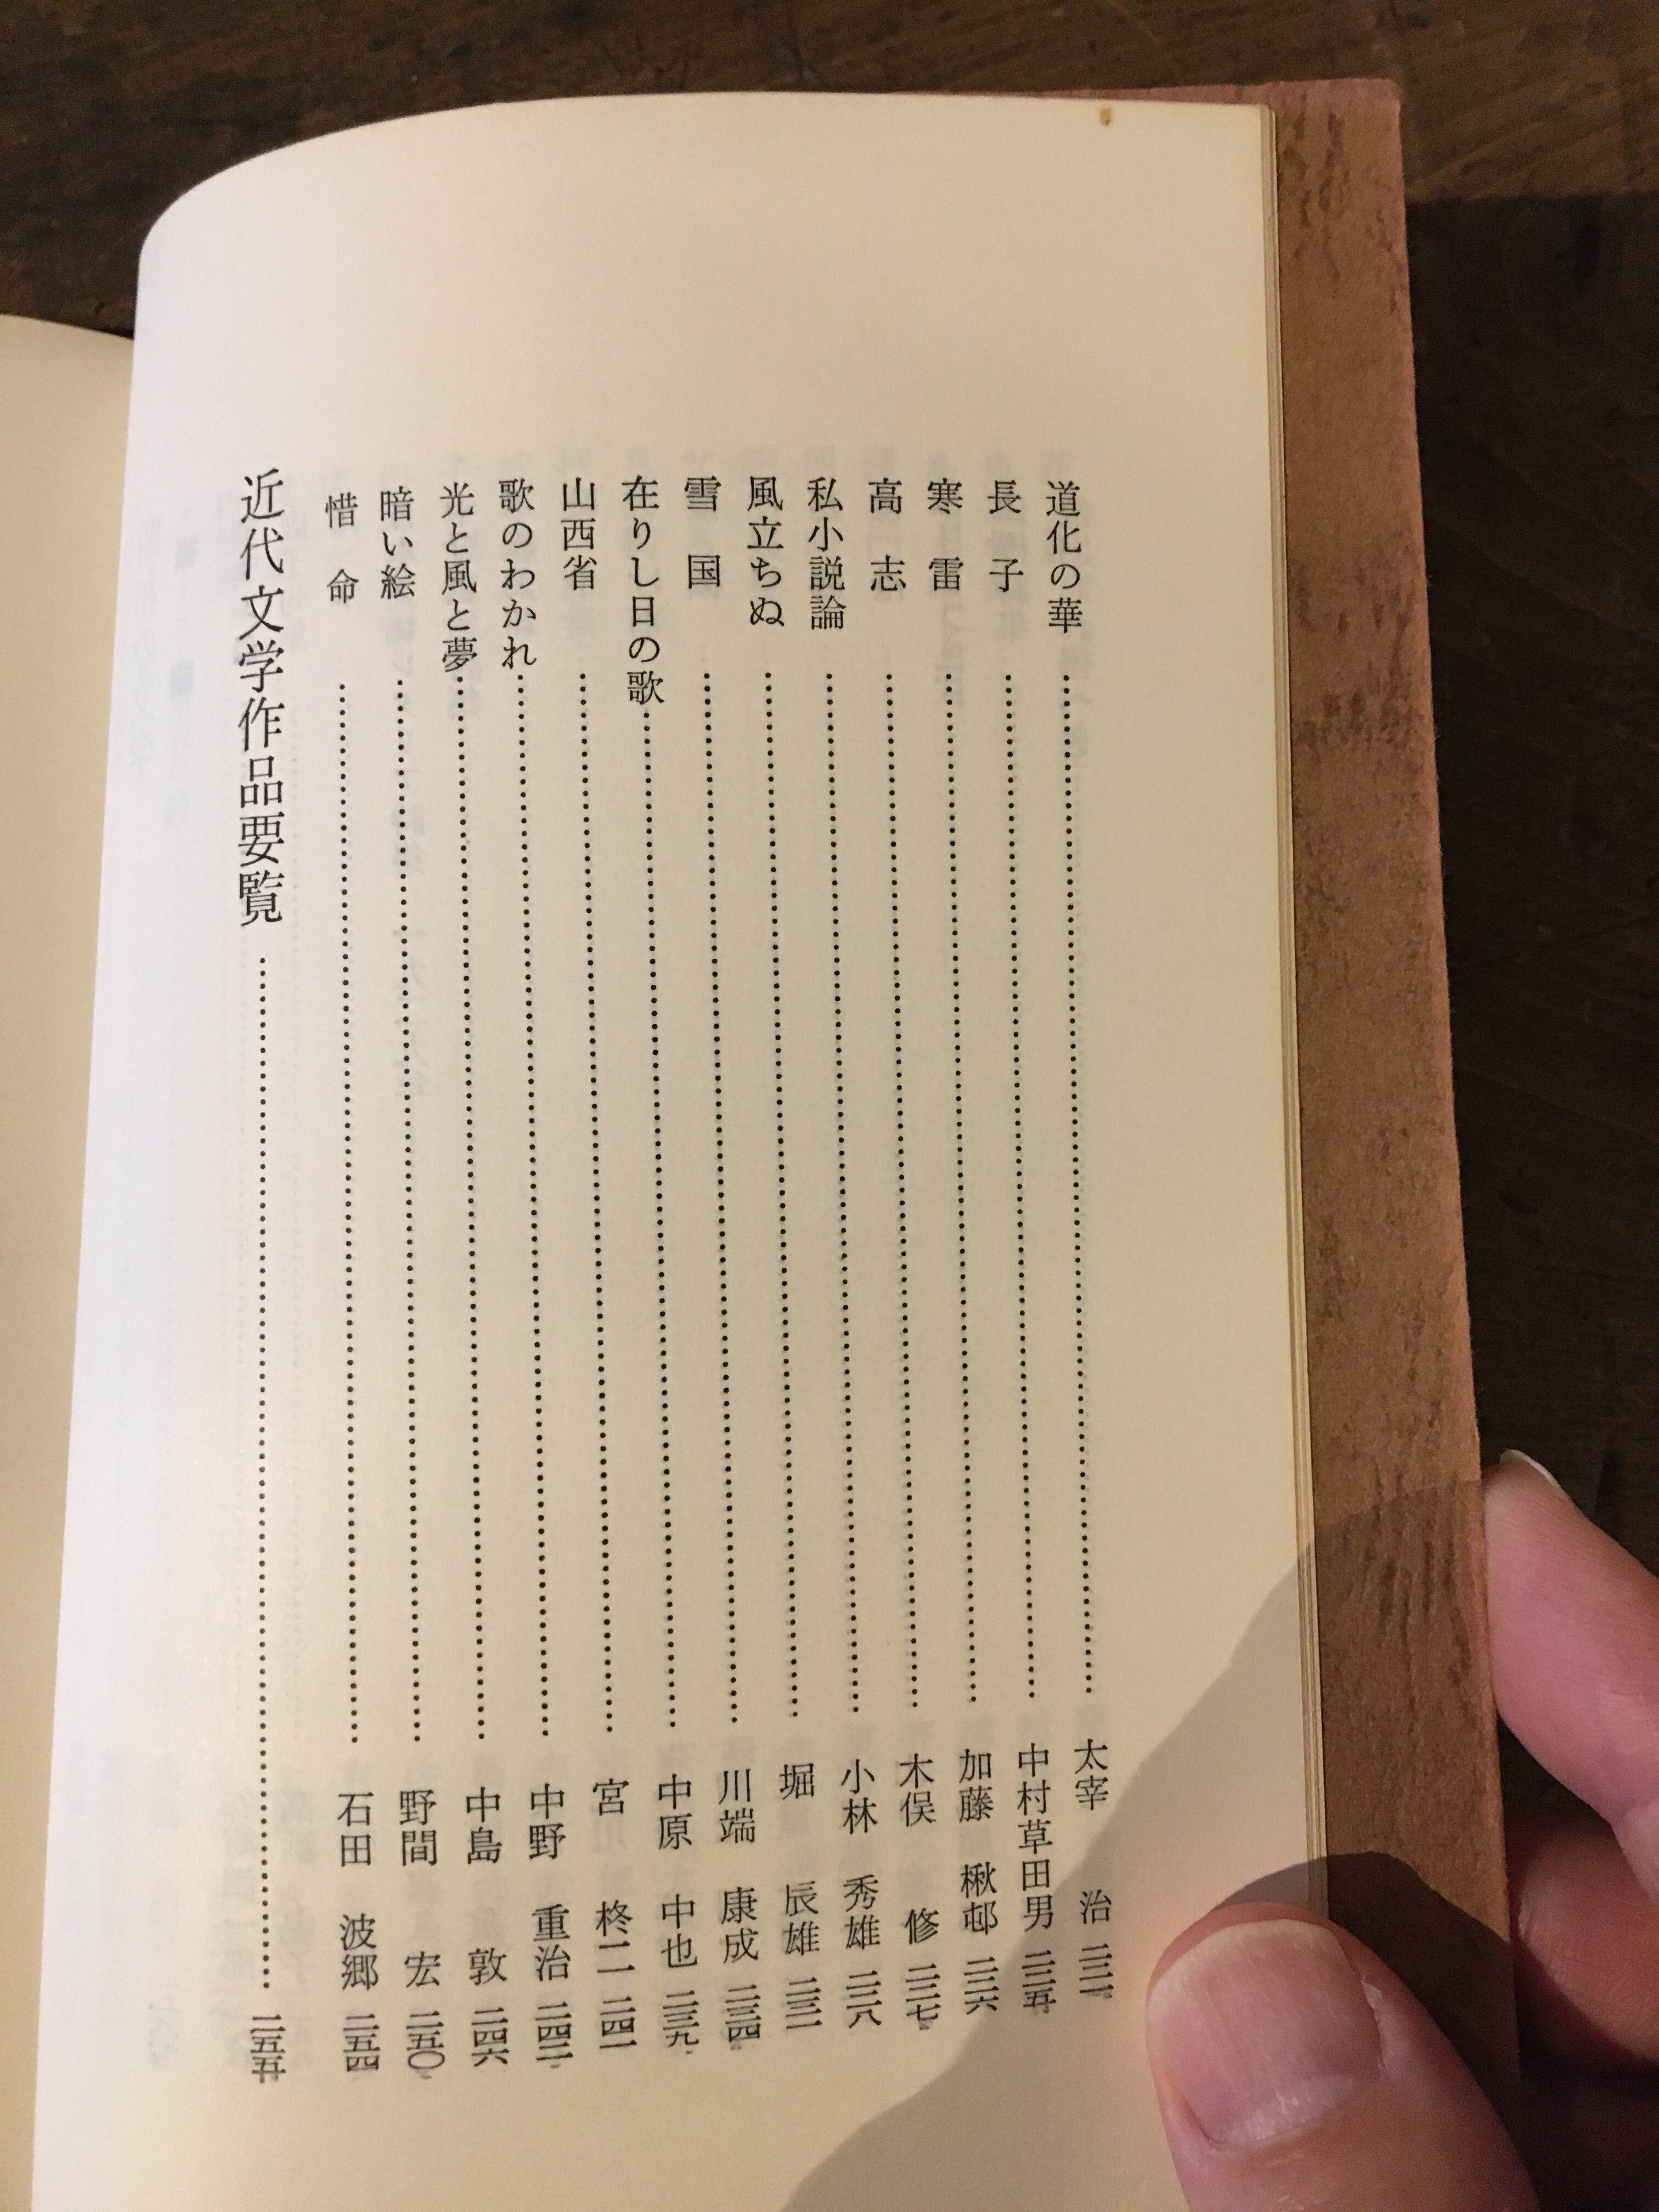 道化の華 太宰 治 二二一
長子 中村草田男 二二五
寒雷 加藤 楸邨 二二六
高志 木俣 修 二二七
私小説論 小林 秀雄 二二八
風立ちぬ 堀 辰雄 二三一
雪国 川端 康成 二三四
在りし日の歌 中原 中也 二三九
山西省 宮 柊二 二四一
歌のわかれ 中野 重治 二四二
光と風と夢 中島 敦 二四六
暗い絵 野間 宏 二五〇
惜命 石田 波郷 二五四
近代文学作品要覧 二五五